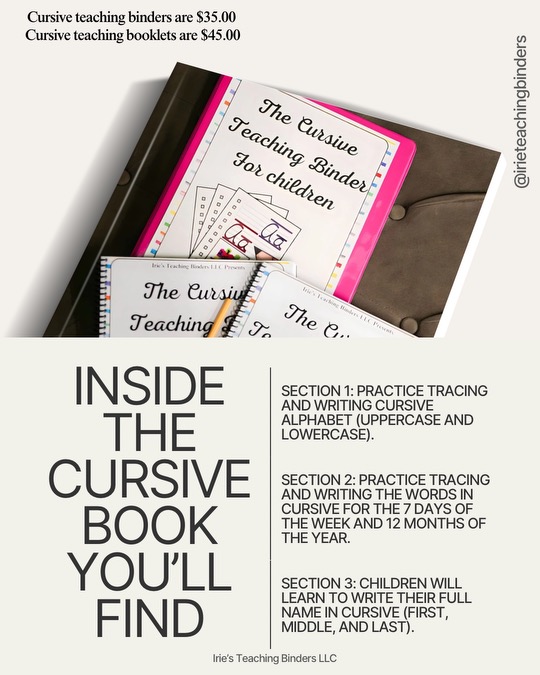 Cursive teaching binders are $35.00
Cursive teaching booklets are $45.00
@irieteachingbinders
The Cursive
Teaching Binder
For children
Aa
Aa
Irie's Teaching Binders LLC Presents
The Cursiv
Teaching
Irie's Teaching Binders LLC Presents
The Cu
Te
INSIDE
THE
CURSIVE
BOOK
YOU'LL
FIND
SECTION 1: PRACTICE TRACING
AND WRITING CURSIVE
ALPHABET (UPPERCASE AND
LOWERCASE).
SECTION 2: PRACTICE TRACING
AND WRITING THE WORDS IN
CURSIVE FOR THE 7 DAYS OF
THE WEEK AND 12 MONTHS OF
THE YEAR.
SECTION 3: CHILDREN WILL
LEARN TO WRITE THEIR FULL
NAME IN CURSIVE (FIRST,
MIDDLE, AND LAST).
Irie's Teaching Binders LLC